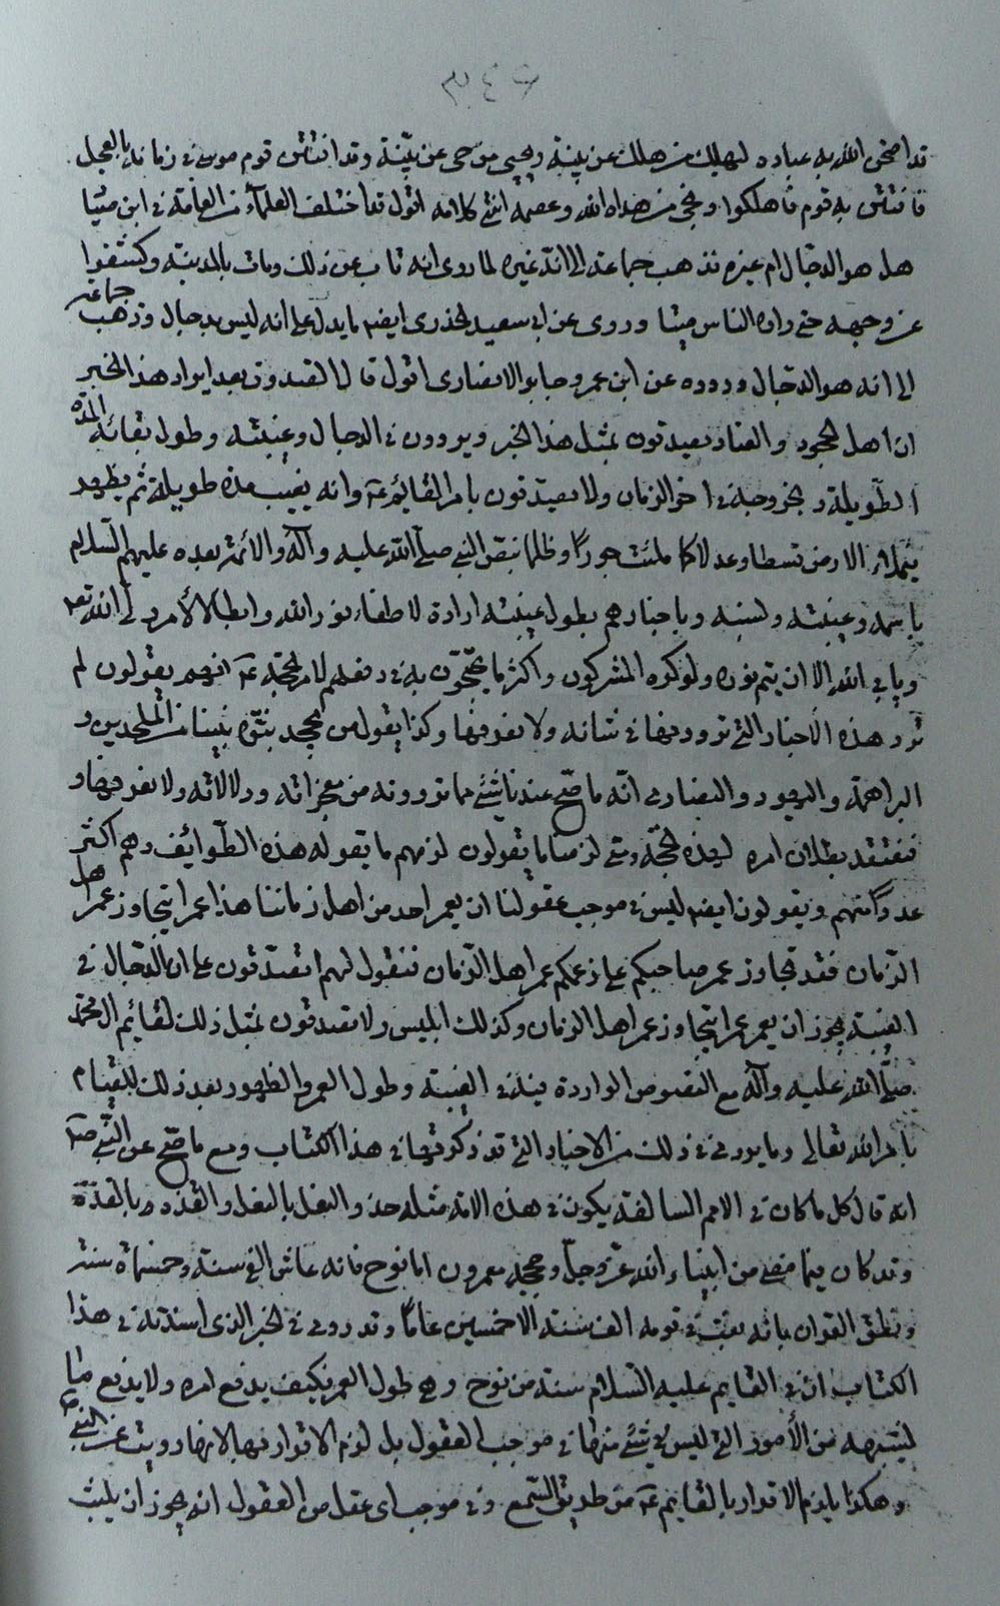 ٣٤٦
قد امتحن الله به عباده ليهلك من هلك عن بينة ويحيى من حى عن بيّنة وقد افتتن قوم موسى فى زمانه بالعجل
فافتتن به قوم فاهلكوا ونجى من هداه الله وعصمه انتهى كلامه اقول قد اختلف العلماء من العامّة فى ابن صيّا
هل هو الدجال ام غيره فذهب جماعة الى انه غيره لما روى انه تاب عن ذلك ومات بالمدينة وكشفوا
عن وجهه حتى راوه الناس ميتا وروى عن ابى سعيد الخدرى ايضا ما يدل على انه ليس بدجال وذهب جماعة
الى انه هو الدجال ورووه عن ابن عمر وجابر الانصارى اقول قال الصدوق بعد ايراد هذا الخبر
ان اهل الجحود والعناد يصدقون بمثل هذا الخبر ويروون فى الدجال وغيبته وطول بقائه المدة
الطّويلة وبخروجه فى اخر الزمان ولا يصدّقون بامر القائم ع وانه يغيب مدة طويلة ثم يظهر
فيملأ الارض قسطا وعدلا كما ملئت جورًا وظلما بنص النبى صلى الله عليه وآله والائمة بعده عليهم السلام
باسمه وغيبته ونسبه وباخبارهم بطول غيبته ارادة لاطفاء نور الله وابطالا لأمر ولى الله
ويابى الله الا ان يتم نوره ولو كره المشركون واكثر ما يحتجّون به فى دفعهم لامر الحجّة ع انهم يقولون لم
نرو هذه الاخبار التى تروونها فى شانه ولا نعرفها وكذا يقول من يجحد نبوّة نبينا من الملحدين و
البراهمة واليهود والنصارى انّه ما صحّ عندنا شئ مما تروونه من معجزاته ودلالاته ولا نعرفها و
نعتقد بطلان امره لهذه الجهة ومتى لزمنا ما يقولون لزمهم ما يقوله هذه الطّوائف وهم اكثر
عددًا منهم ويقولون ايضا ليس فى موجب عقولنا ان يعمر احد من اهل زماننا هذا عمرا يتجاوز عمر اهل
الزمان فقد تجاوز عمر صاحبكم على زعمكم عمر اهل الزمان فنقول لهم اتصدّقون على ان الدجال فى
الغيبة يجوز ان يعمر عمرا يتجاوز عمر اهل الزمان وكذلك ابليس ولا تصدقون بمثل ذلك لقائم ال محمد
صلى الله عليه وآله مع النصوص الواردة فيه فى الغيبة وطول العمر والظهور بعد ذلك للقيام
بامر الله تعالى وما روى فى ذلك من الاخبار التى قد ذكرتها فى هذا الكتاب ومع ما صحّ عن النبى ص
انه قال كل ما كان فى الامم السالفة يكون فى هذه الامة مثله حذو النعل بالنعل والقذه بالقذة
وقد كان فيما مضى من انبياء الله عز وجل وحججه معمرون اما نوح فانه عاش الفى سنة وخمسماة سنة
ونطق القران بانه لبث فى قومه الف سنة الا خمسين عاما وقد روى فى الخبر الذى اسندته فى هذا
الكتاب ان فى القايم عليه السلام سنة من نوح وهى طول العمر فكيف يدفع امره ولا يدفع ما
يشبهه من الأمور التى ليس شئ منها فى موجب العقول بل لزم الاقرار بها لانها رويت عن النبى ص
وهكذا يلزم الاقرار بالقايم ع من طريق السّمع وفى موجب اى عقل من العقول انه يجوز ان يلبث